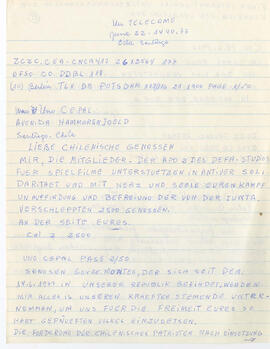 Um TELECOMO
June 22 - 1440.77
Cola Santiago
ZCZC.CEA.CNCA
DFSO CO. DDBL
Berlin TLX DB POTSDAM PAGE 1/50
CEPAL
AVENIDA HAMMARSJOELD
Santiago. Chile
LIEBE CHILENISCHE GENOSSEN
MIR, DIE MITGLIEDER. DER APO 2 DES DEFA-STUDIOS
FUER SPIELFILME UNTERSTUETZEN IN AKTIVER SOLI
DARITAET UND MIT HERZ UND SEELE EUREN KAMPF
UM AUFFINDUNG UND BEFREIUNG DER VON DER JUNTA,
VERSCHLEPPTEN 2500 GENOSSEN.
AN DER SEITE EURES.
Col 2 2500
UNO CEPAL PAGE 2/50
GENOSSEN MONTES, DER SICH SEIT DEM
IN UNSERER REPUBLIK BEFINDET, WERDEN
WIR ALLES IN UNSEREN KRAEFTEN STEHENDE UNTER-
NEHMEN, UM UNS FUER DIE FREIHEIT EURES SO
HART GEPRUEFTEN VOLKES EINZUSETZEN.
DIE FORDERUNG DER CHILENISCHEN PATRIOTEN NACH EINSETZUNG